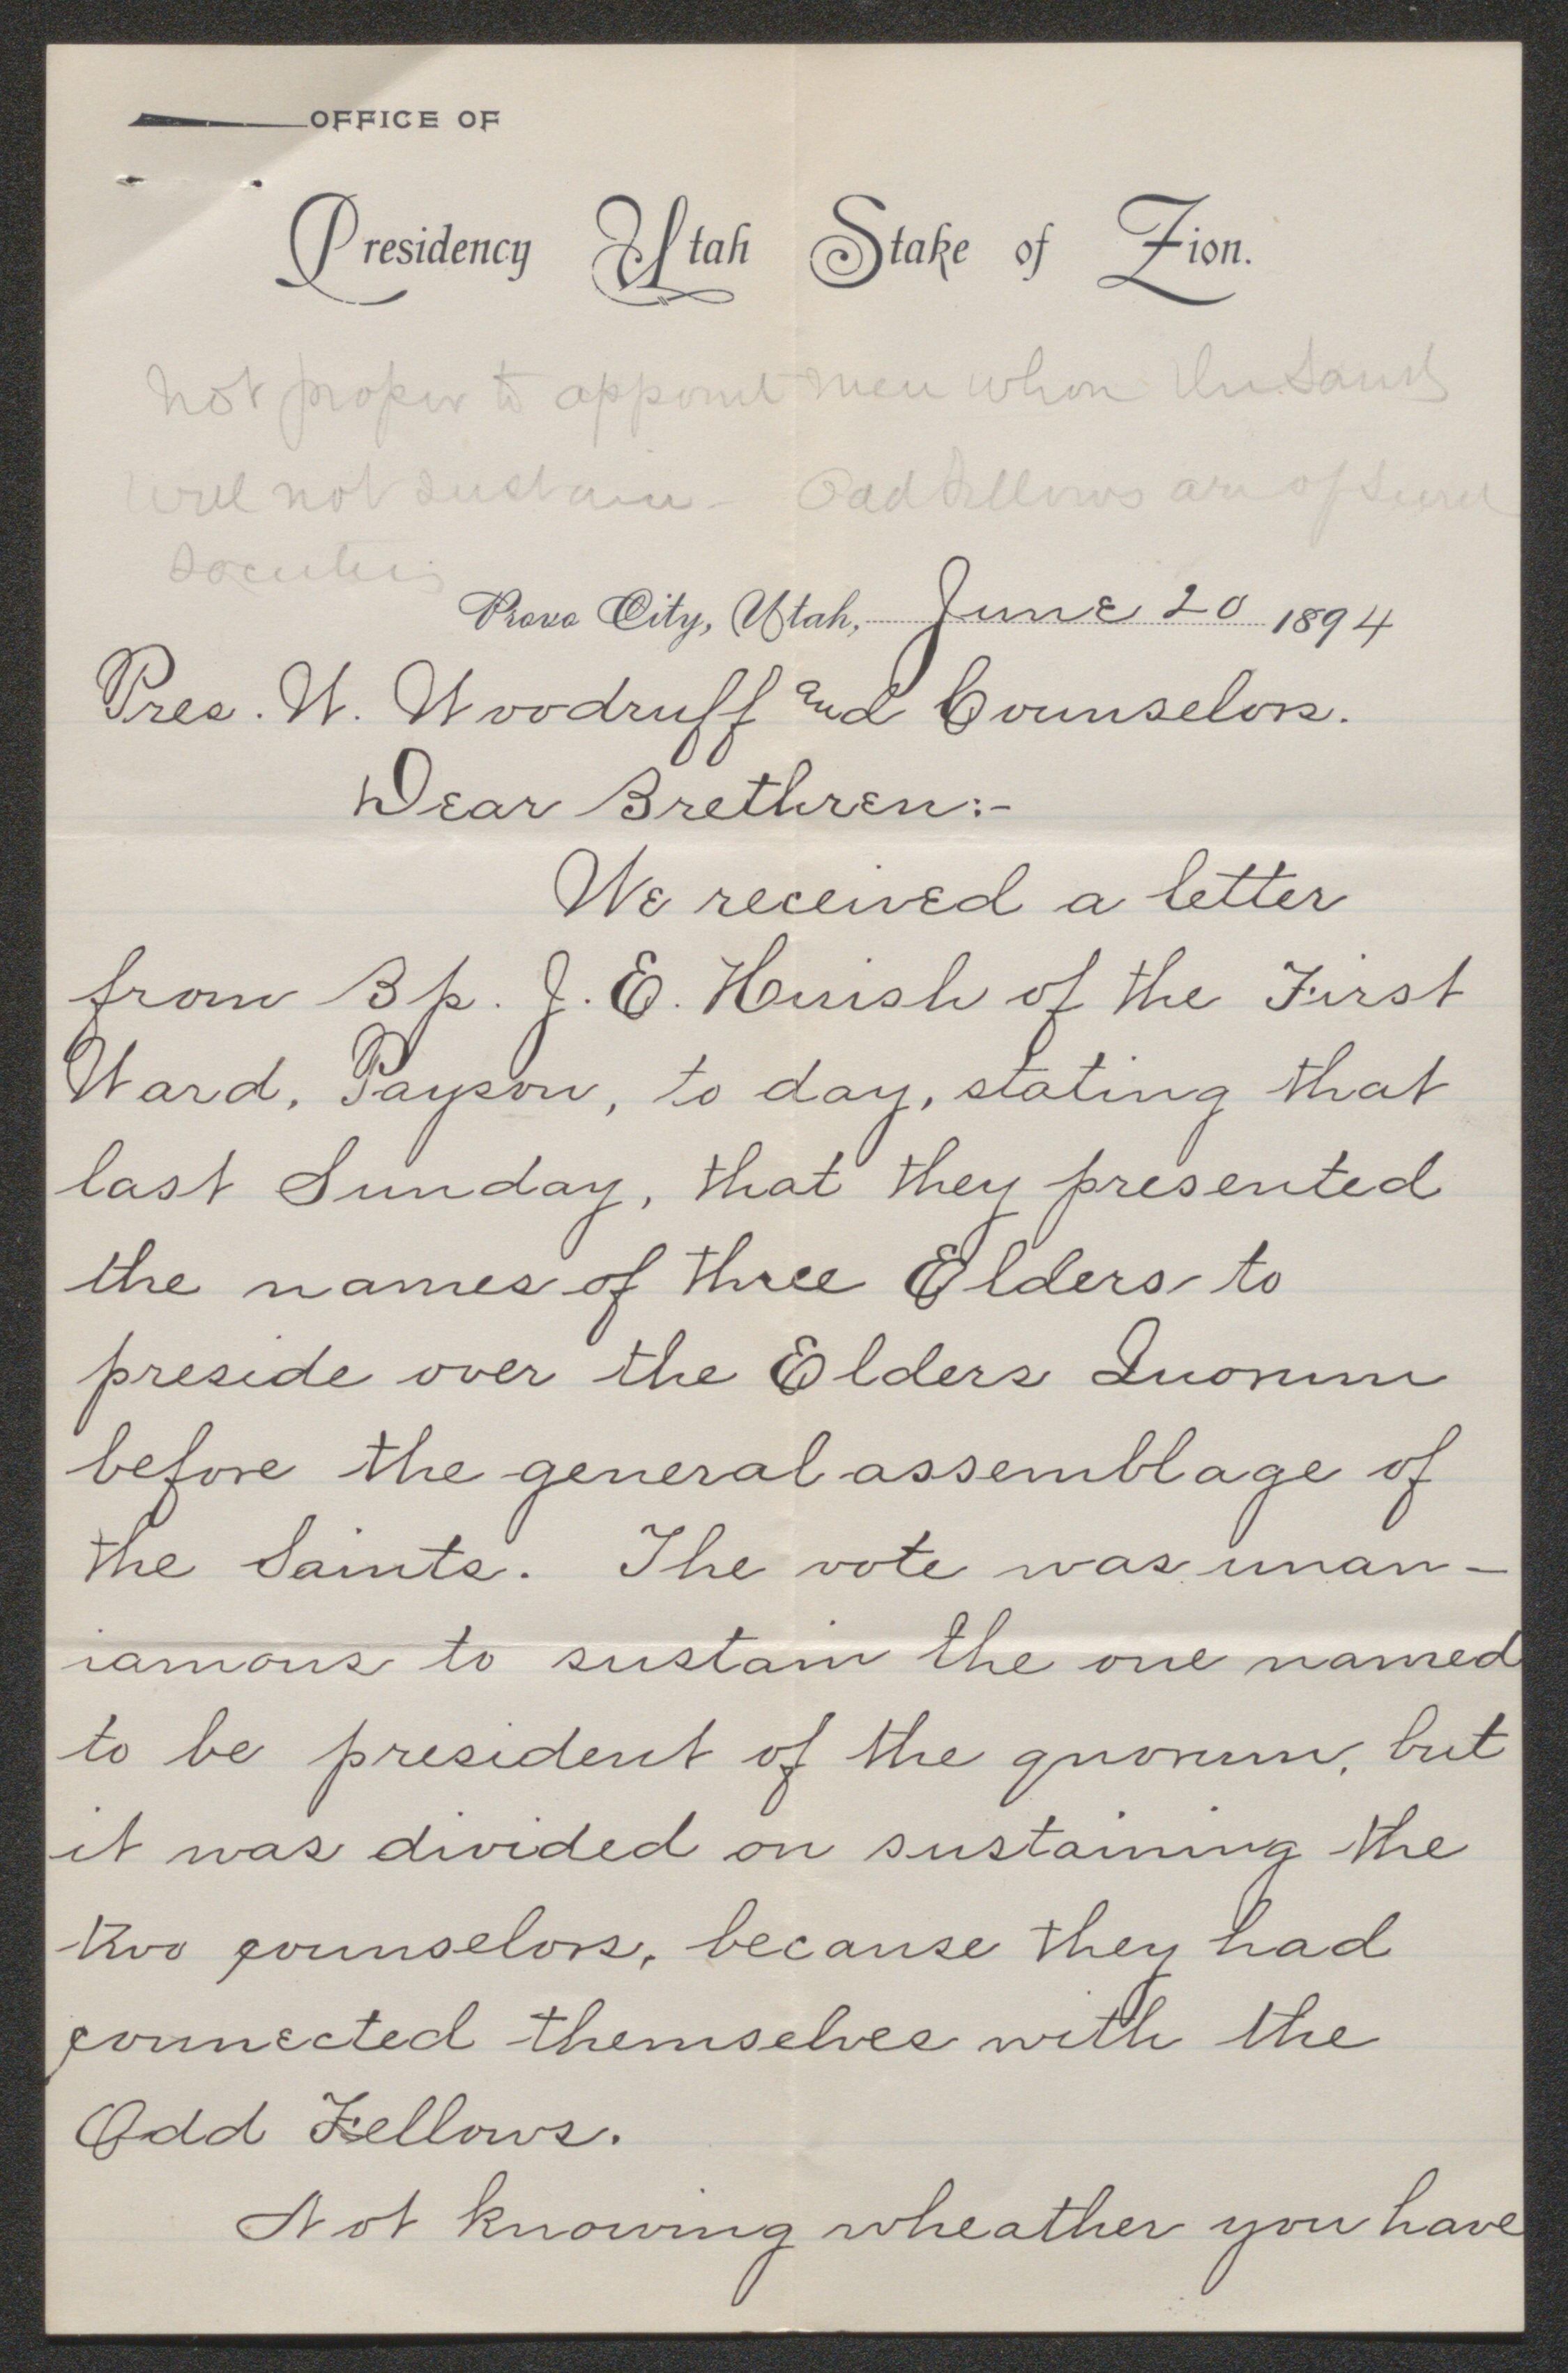 OFFICE OF
Presidency Utah Stake of Zion.
Not proper to appoint men whom the Saints
will not sustain - Odd Fellows are of Secret
Societies
Provo City, Utah, June 20 1894
Pres. W. Woodruff and Counselors.
Dear Brethren:-
We received a letter
from Bp. J. E. Huish of the First
Ward, Payson, to day, stating that
last Sunday, that they presented
the names of three Elders to
preside over the Elders Quorum
before the general assemblage of
the Saints. The vote was unan-
iamous to sustain the one named
to be president of the quorum, but
it was divided on sustaining the
two counselors, because they had
connected themselves with the
Odd Fellows.
Not knowing wheather you have